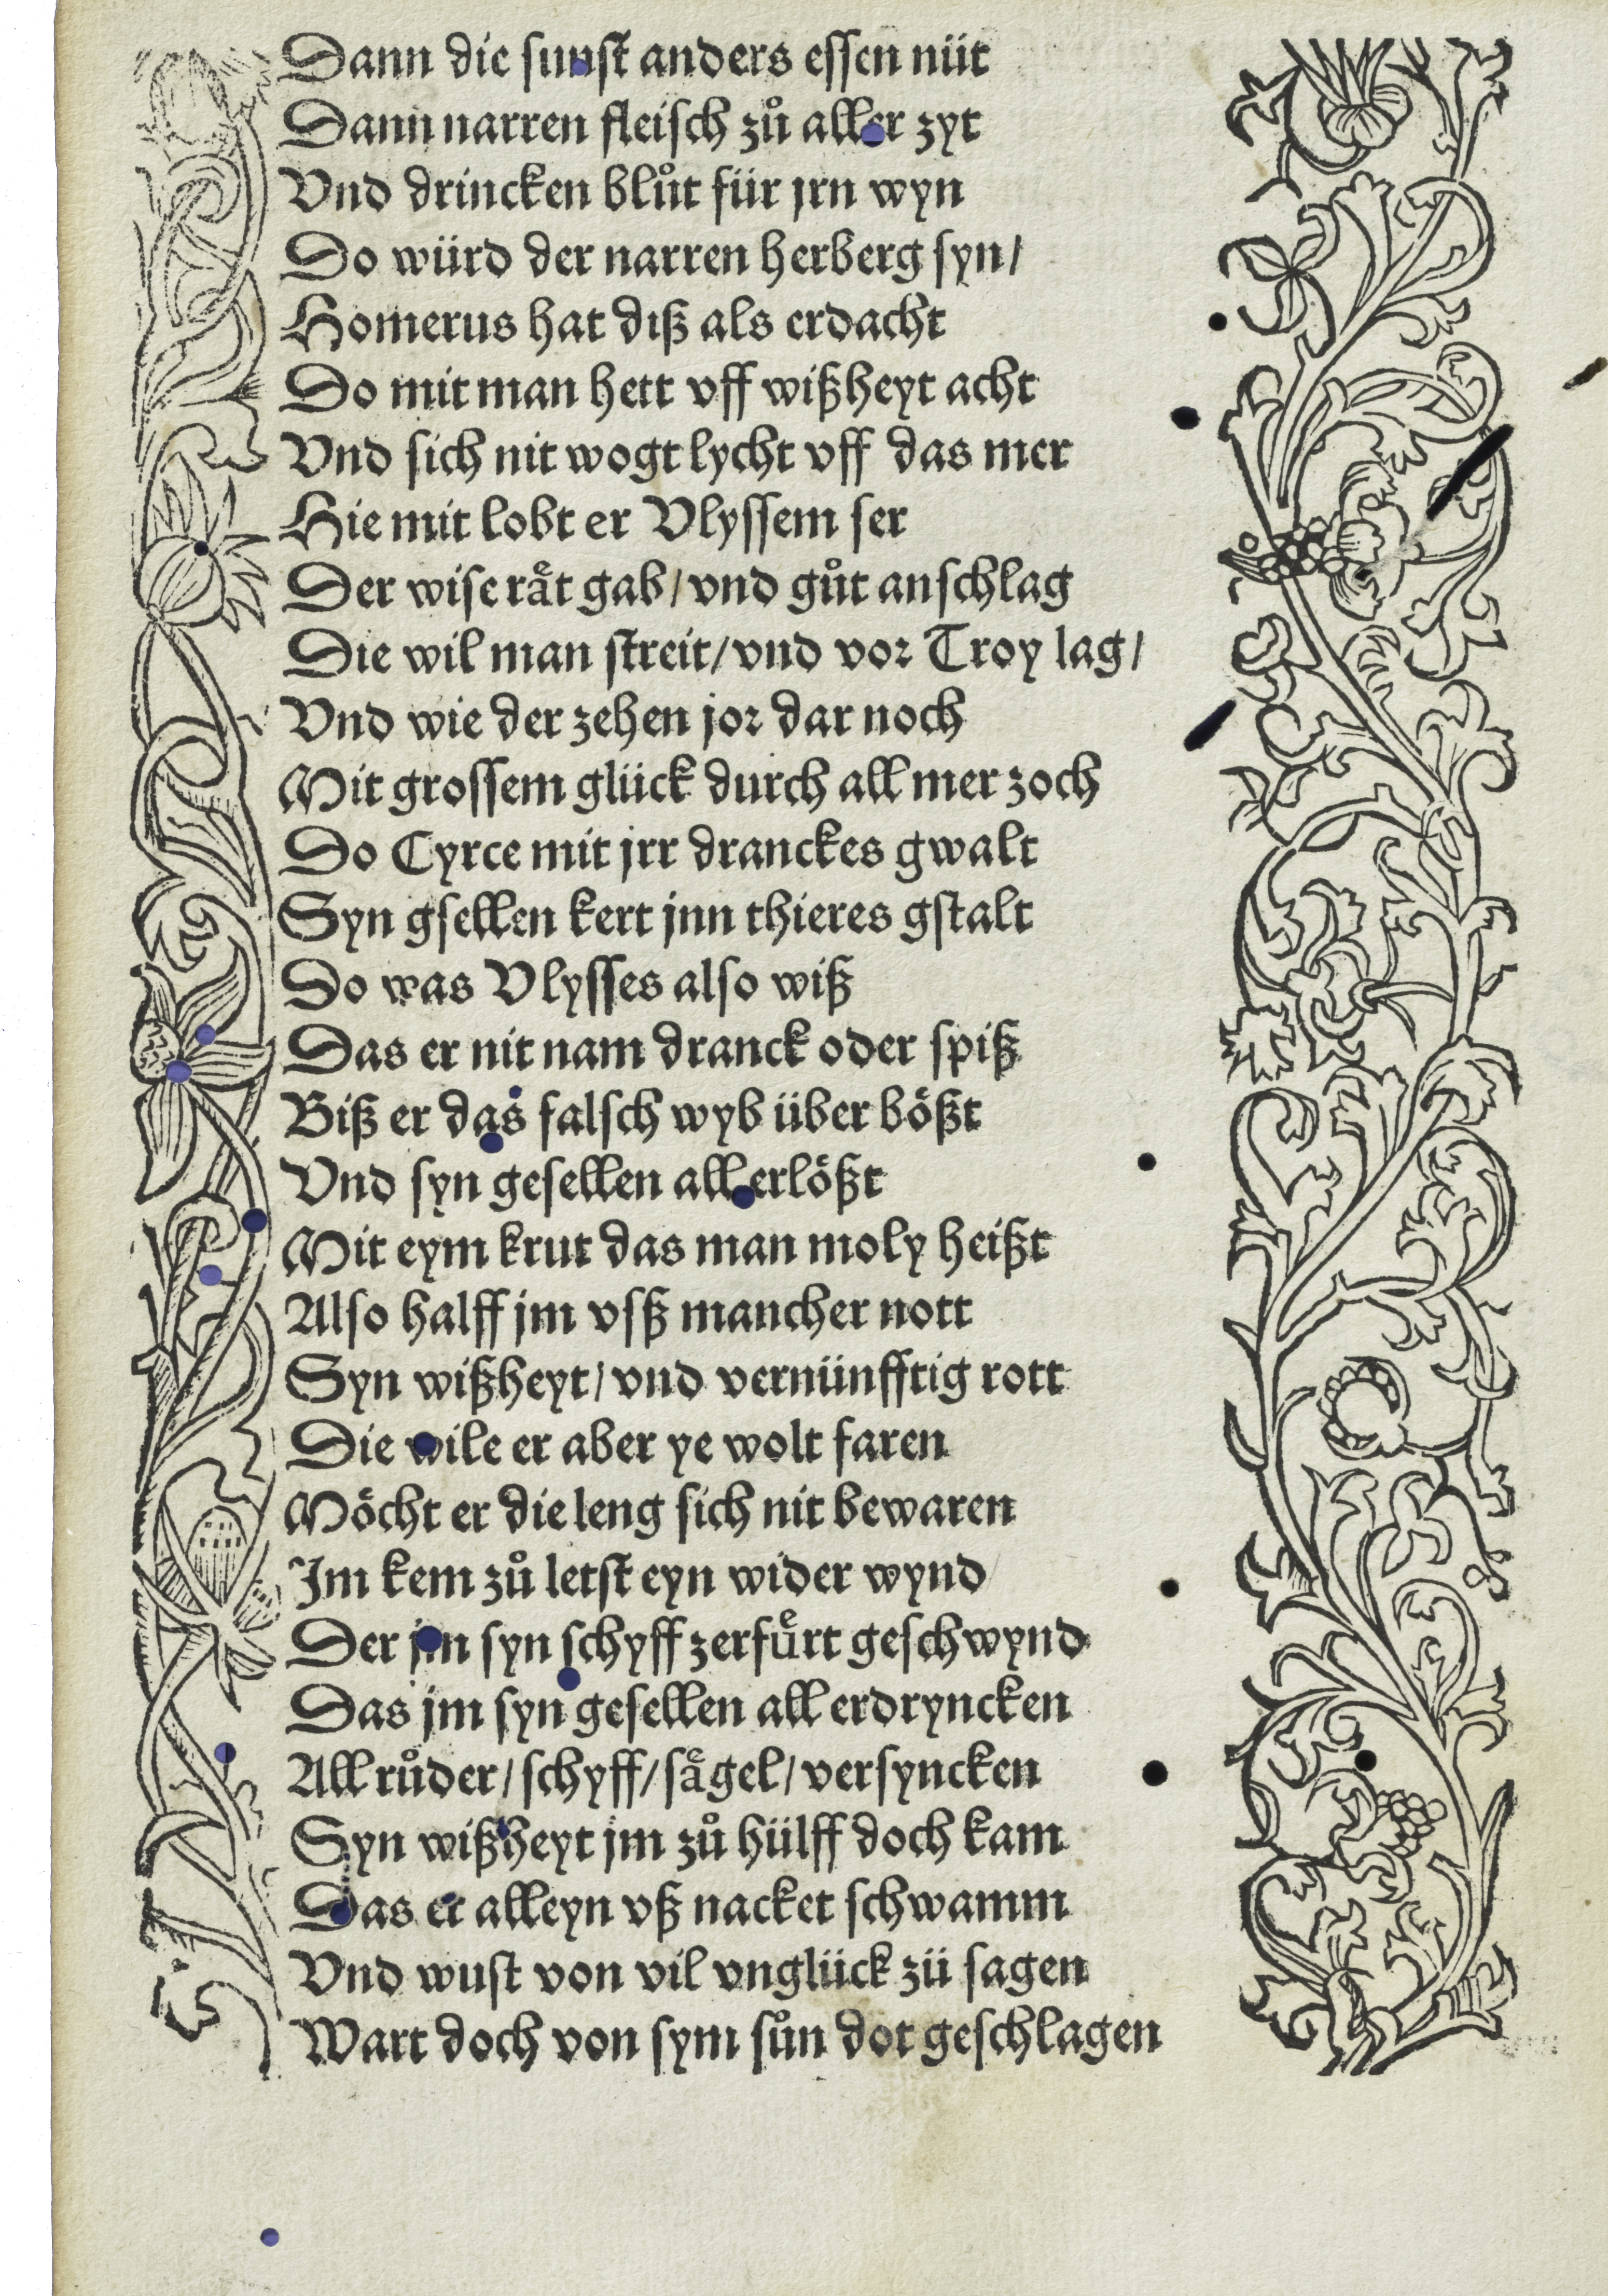 Dann die sunst anders essen nüt
Dann narren fleisch zuͦ aller zyt
Vnd drincken bluͦt für jrn wyn
Do würd der narren herberg syn/
Homerus hat diß als erdacht
Do mit man hett vff wißheyt acht
Vnd sich nit wogt lycht vff das mer
Hie mit lobt er Vlyssem ser
Der wise raͤt gab/ vnd guͦt anschlag
Die wil man streit/ vnd vor Troy lag/
Vnd wie der zehen jor dar noch
Mit grossem glück durch all mer zoch
Do Cyrce mit jrr dranckes gwalt
Syn gsellen kert jnn thieres gstalt
Do was Vlysses also wiß
Das er nit nam dranck oder spiß
Biß er das falsch wyb über boͤßt
Vnd syn gesellen all erloͤßt
Mit eym krut das man moly heißt
Also halff jm vsß mancher nott
Syn wißheyt/ vnd vernünfftig rott
Die wile er aber ye wolt faren
Moͤcht er die leng sich nit bewaren
Im kem zuͦ letst eyn wider wynd
Der jm syn schyff zerfuͤrt geschwynd
Das jm syn gesellen all erdryncken
All ruͦder/ schyff/ saͤgel/ versyncken
Syn wißheyt jm zuͦ hülff doch kam
Das er alleyn vß nacket schwamm
Vnd wust von vil vnglück zü sagen
Wart doch von sym suͦn dot geschlagen